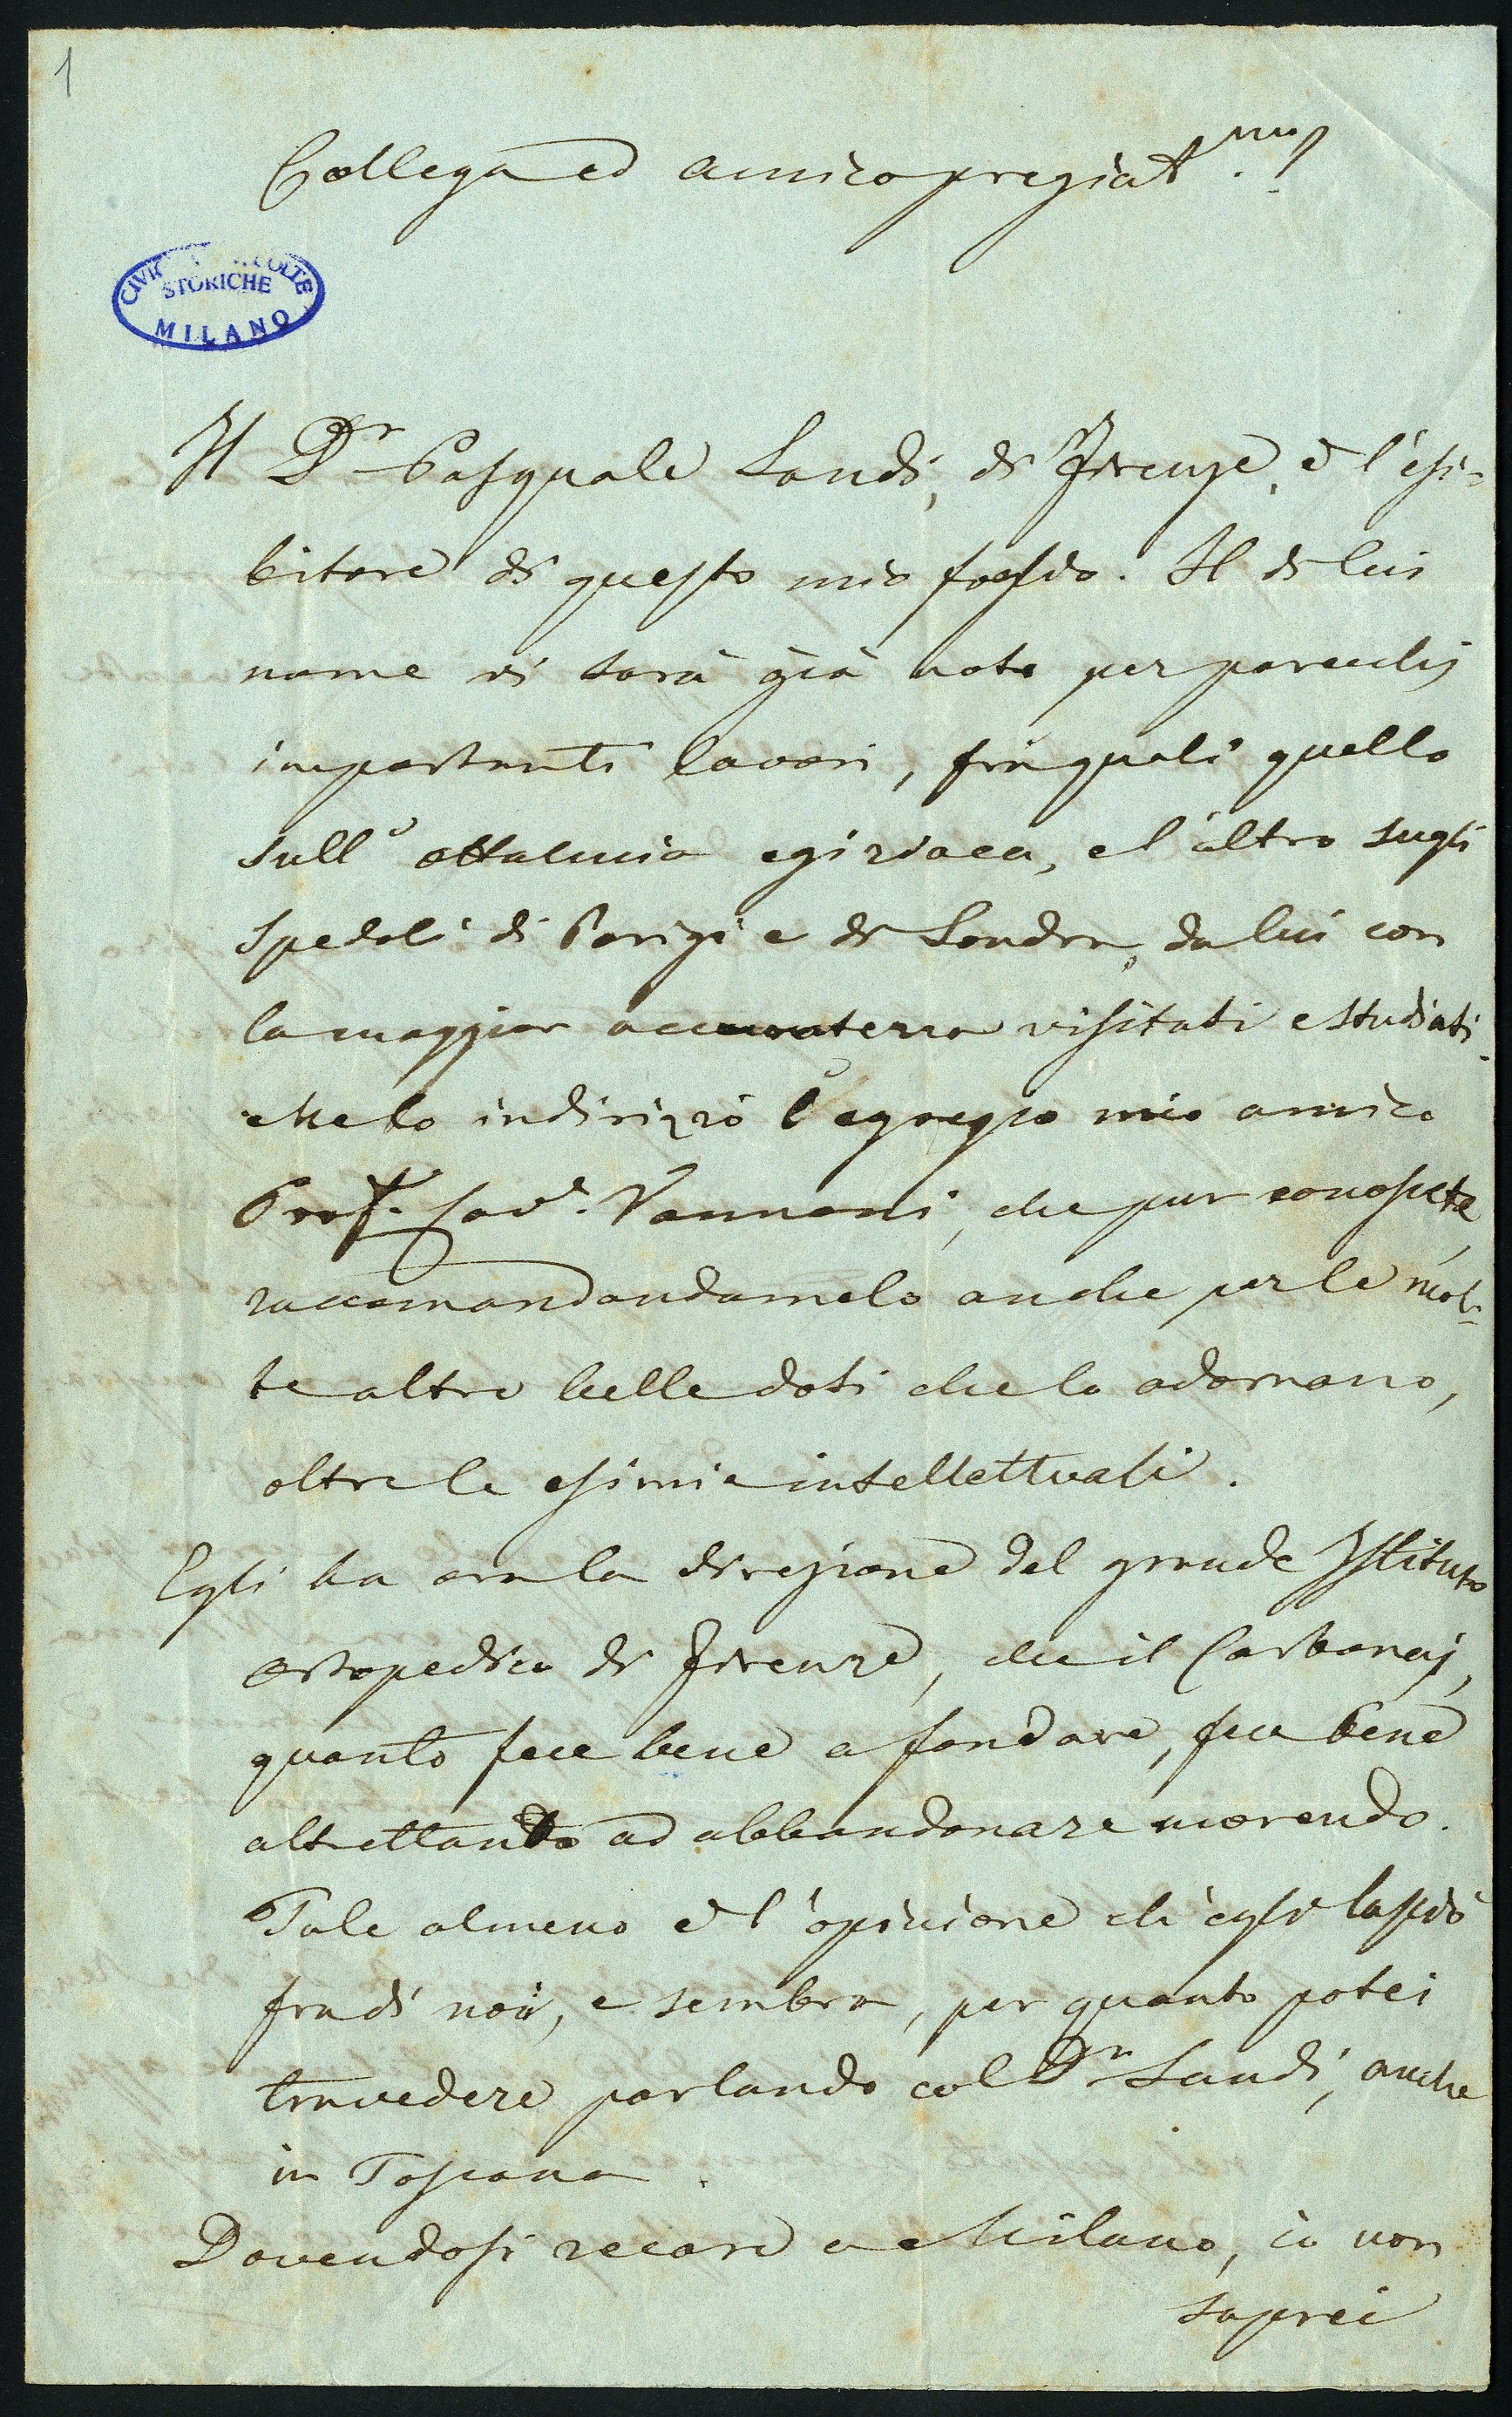 1
Collega ed amico pregiat.mo
CIVICHE RACCOLTE
STORICHE
MILANO
Il Dr Pasquale Landi, di Firenze, è l'esi-
bitore di questo mio foglio. Il di lui
nome vi sarà già noto per parecchj
importanti lavori, fra quali quello
sull'ottalmia egiziaca, e l'altro sugli
spedali di Parigi e di Londra, da lui con
la maggior accuratezza visitati e studiati.
Me lo indirizzò l'egregio mio amico
Prof. Vannoni, che pur conoscete,
raccomandandamelo anche per le mol-
te altre belle doti che lo adornano,
oltre le esimie intellettuali.
Egli ha ora la direzione del grande Istituto
ortopedico di Firenze, che il Carbonaj,
quanto fece bene a fondare, fece bene
altrettanto ad abbandonare morendo.
Tale almeno è l'opinione ch'egli lasciò
fra di noi, e sembra, per quanto potei
travedere parlando col Dr Landi, anche
in Toscana.
Dovendosi recare a Milano, io non
saprei